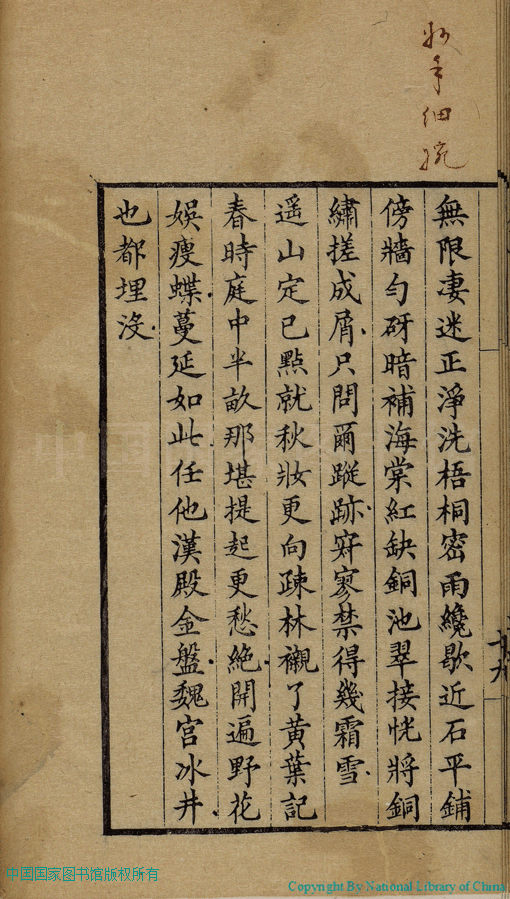 妙手細琬
無限淒迷正淨洗梧桐密雨纔歇近石平鋪
傍牆勻砑暗補海棠紅缺銅池翠接恍將銅
繡搓成屑只問爾蹤跡窏寥禁得幾霜雪
遥山定已點就秋妝更向疎林襯了黃葉記
春時庭中半畝那堪提起更愁絶開遍野花
娛瘦蝶蔓延如此任他漢殿金盤魏宮冰井
也都埋沒
十九
中国国家图书馆版权所有
Copyright By National Library of China